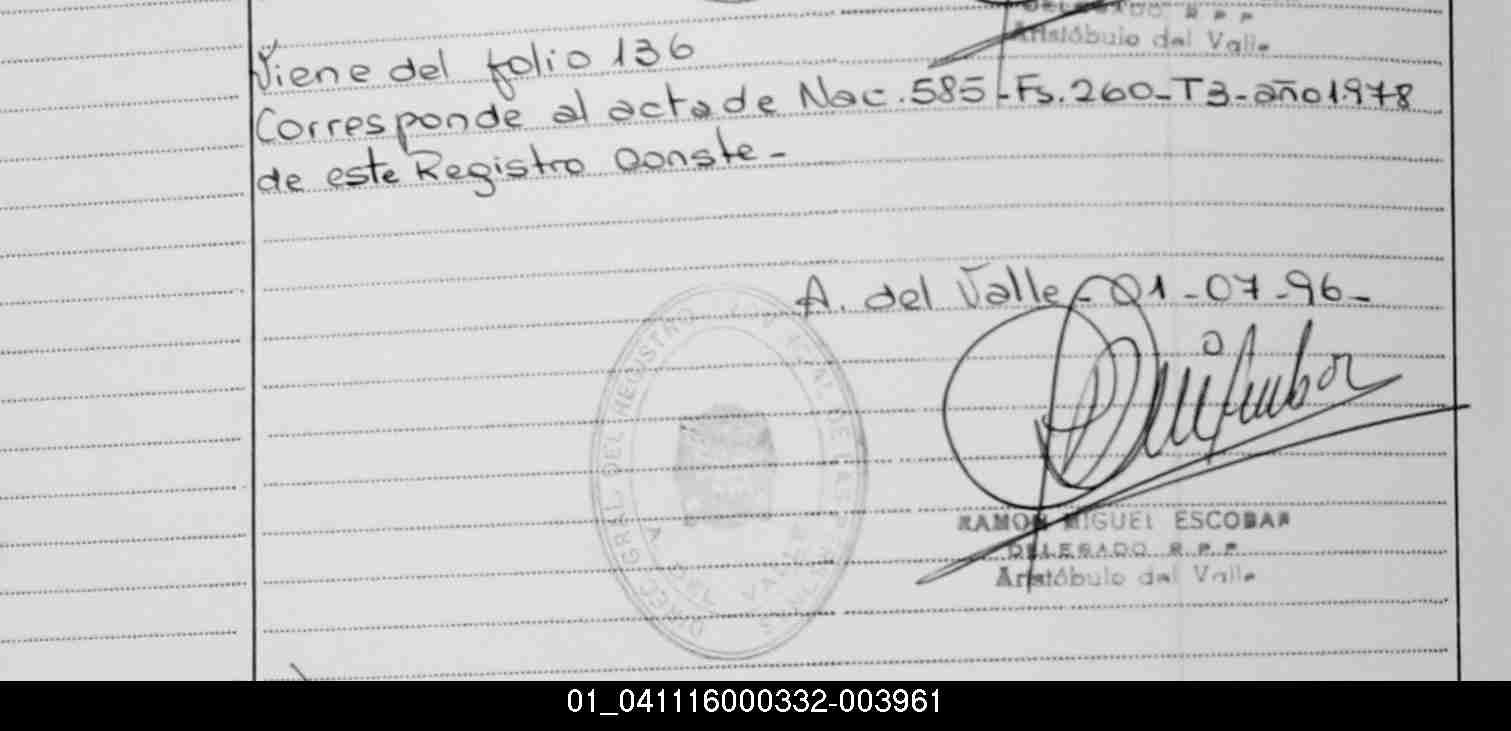 DELEGADO R.P.P
Aristóbulo del Valle
Viene del folio 136
Corresponde al acta de Nac. 585-Fs. 260-T3-año 1978
de este Registro Conste-
A. del Valle-01-07-96-
DIRECC GRAL DEL REGISTRO
A. DEL VALLE
RAMON MIGUEL ESCOBAR
DELEGADO R.P.P
Aristóbulo del Valle
01_041116000332-003961